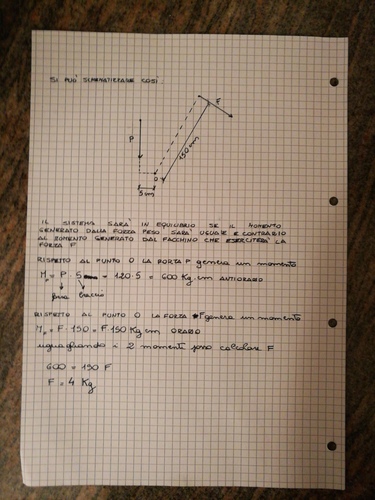 SI PUÒ SCHEMATIZZARE COSÌ:
F
P
150 cm
O
5 cm
IL SISTEMA SARÀ IN EQUILIBRIO SE IL MOMENTO
GENERATO DALLA FORZA PESO SARÀ UGUALE E CONTRARIO
AL MOMENTO GENERATO DAL FACCHINO CHE ESERCITERÀ LA
FORZA F
RISPETTO AL PUNTO O LA FORZA P genera un momento
M = P · 5 = 120 · 5 = 600 Kg cm ANTIORARIO
forza braccio
RISPETTO AL PUNTO O LA FORZA F genera un momento
M = F · 150 = F · 150 Kg cm ORARIO
uguagliando i 2 momenti posso calcolare F
600 = 150 F
F = 4 Kg